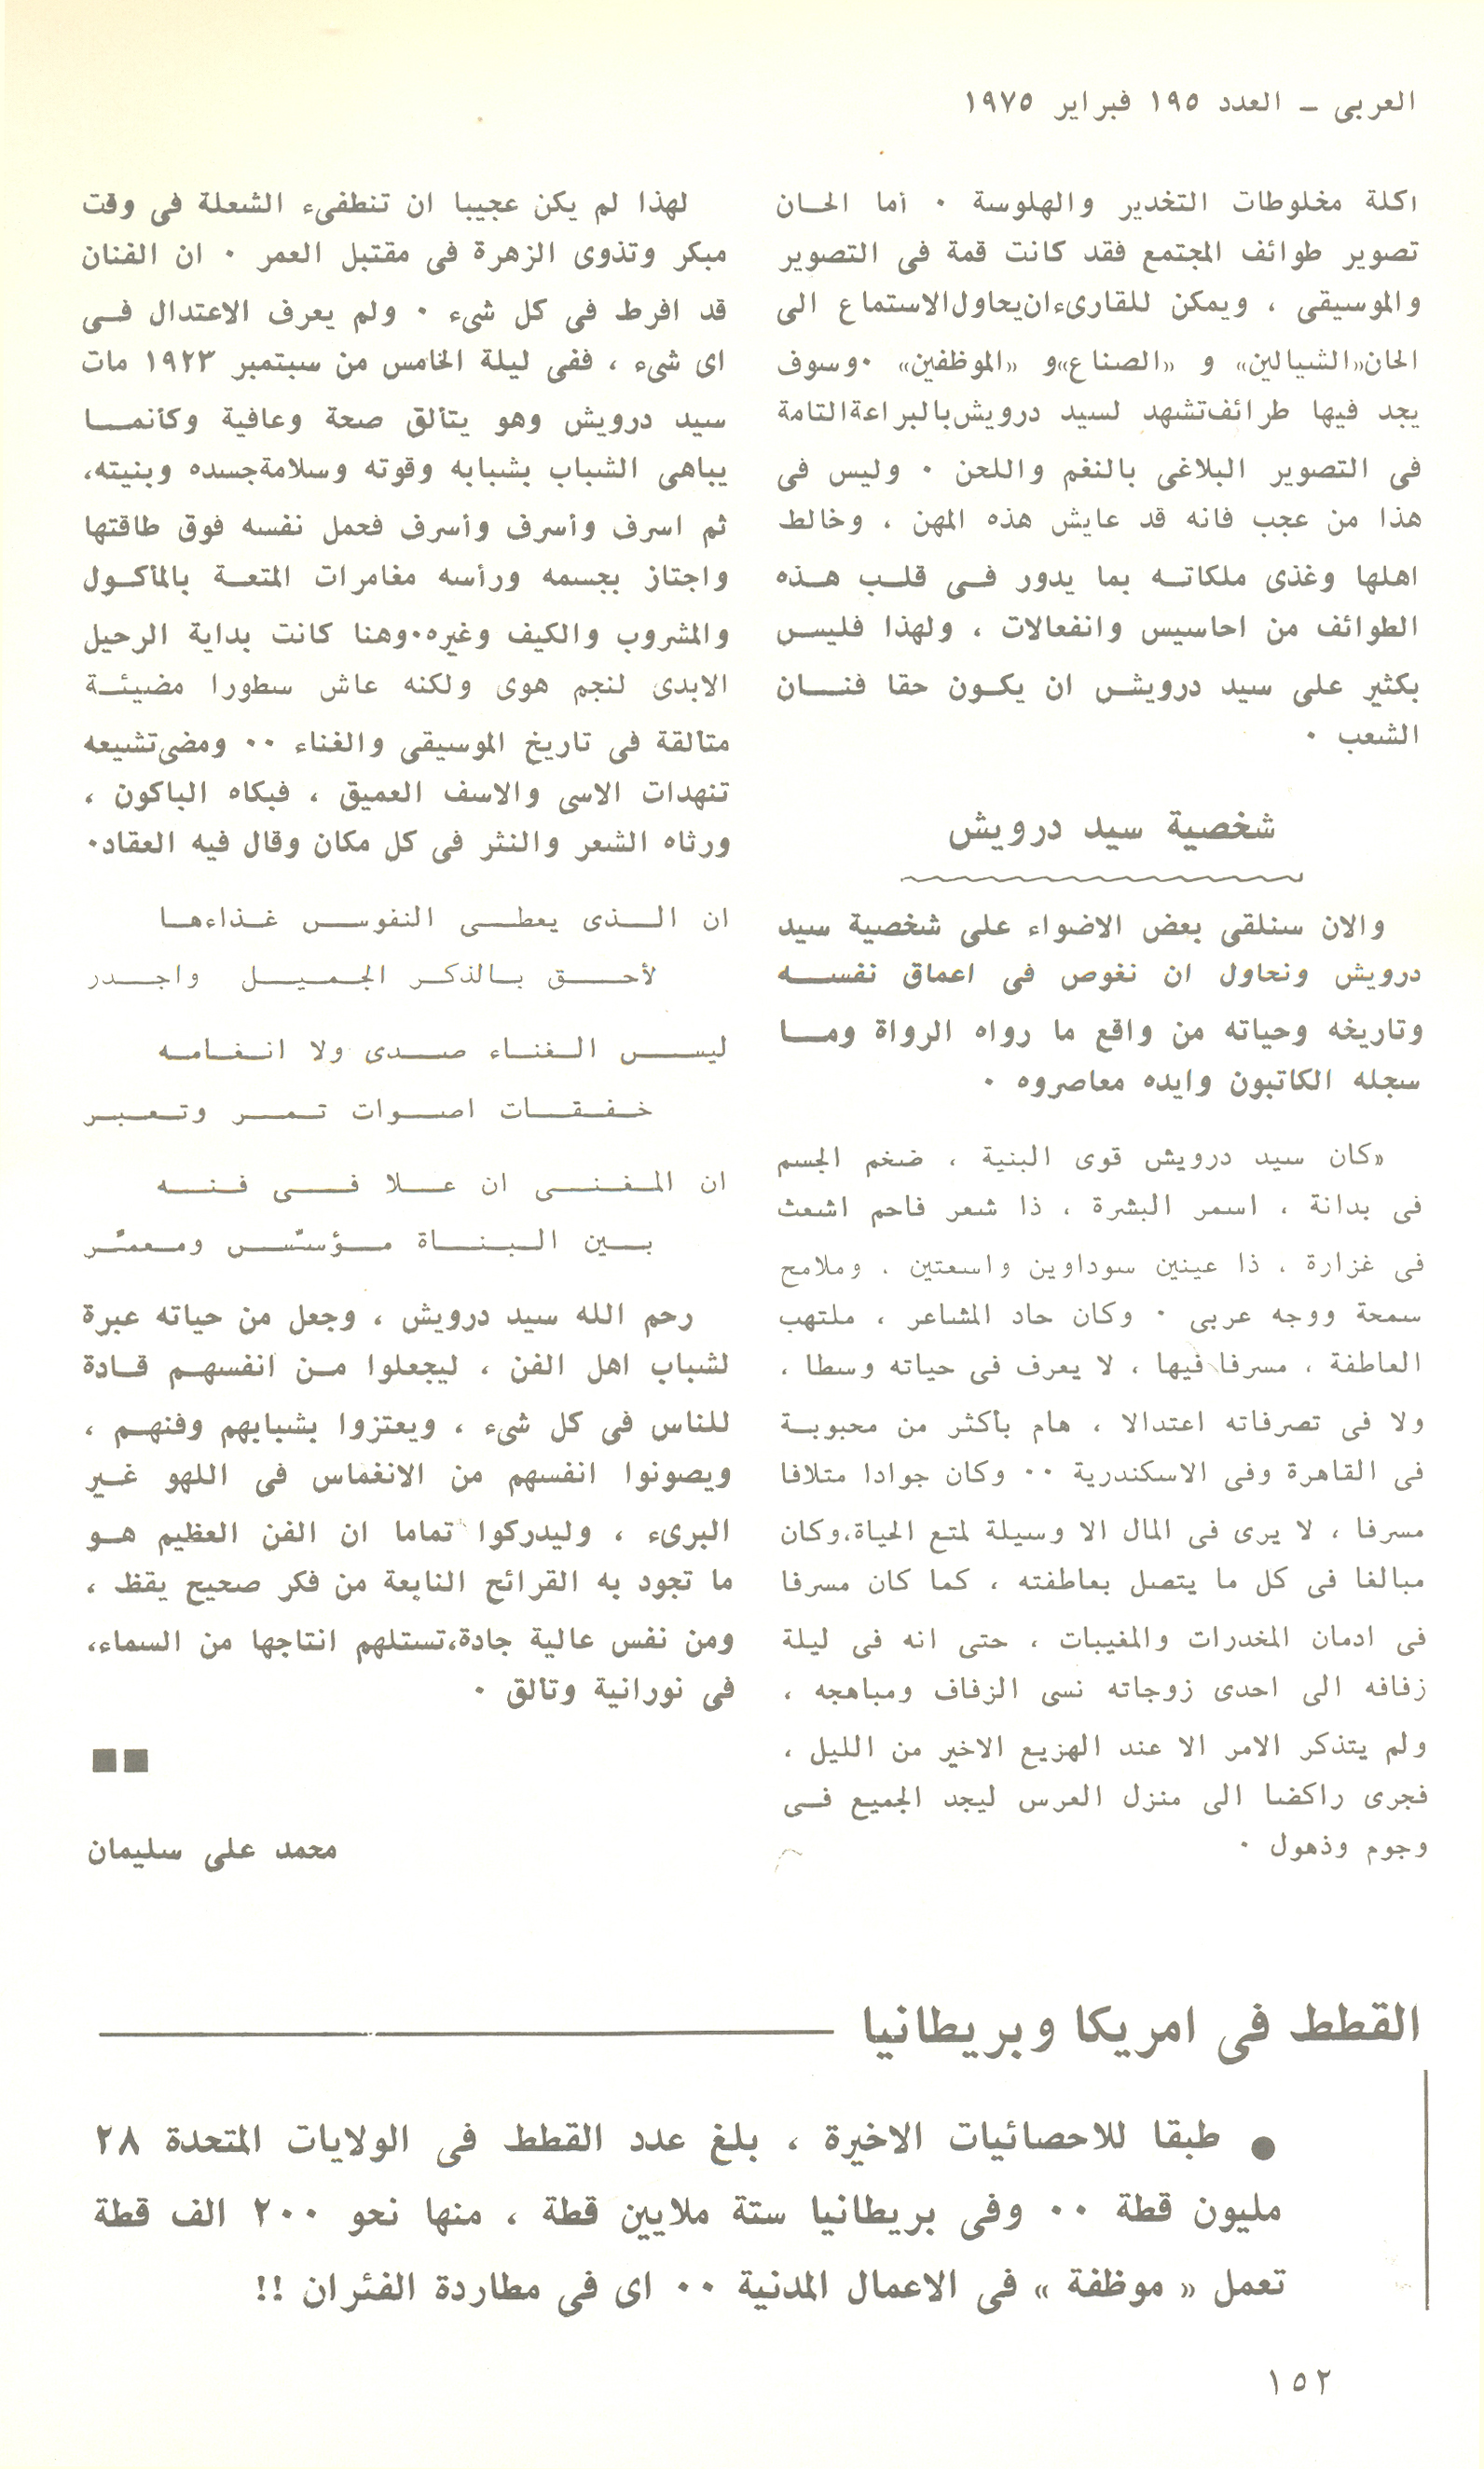 العربى – العدد ١٩٥ فبراير ١٩٧٥
اكلة مخلوطات التخدير والهلوسة ٠ أما الحان
تصوير طوائف المجتمع فقد كانت قمة فى التصوير
والموسيقى ، ويمكن للقارىء ان يحاول الاستماع الى
الحان «الشيالين» و «الصناع» و «الموظفين» ٠ وسوف
يجد فيها طرائف تشهد لسيد درويش بالبراعة التامة
فى التصوير البلاغى بالنغم واللحن ٠ وليس فى
هذا من عجب فانه قد عايش هذه المهن ، وخالط
اهلها وغذى ملكاته بما يدور فى قلب هذه
الطوائف من احاسيس وانفعالات ، ولهذا فليس
بكثير على سيد درويش ان يكون حقا فنان
الشعب ٠
شخصية سيد درويش
والان سنلقى بعض الاضواء على شخصية سيد
درويش ونحاول ان نغوص فى اعماق نفسه
وتاريخه وحياته من واقع ما رواه الرواة وما
سجله الكاتبون وايده معاصروه ٠
«كان سيد درويش قوى البنية ، ضخم الجسم
فى بدانة ، اسمر البشرة ، ذا شعر فاحم اشعث
فى غزارة ، ذا عينين سوداوين واسعتين ، وملامح
سمحة ووجه عربى ٠ وكان حاد المشاعر ، ملتهب
العاطفة ، مسرفا فيها ، لا يعرف فى حياته وسطا ،
ولا فى تصرفاته اعتدالا ، هام بأكثر من محبوبة
فى القاهرة وفى الاسكندرية ٠٠ وكان جوادا متلافا
مسرفا ، لا يرى فى المال الا وسيلة لمتع الحياة، وكان
مبالغا فى كل ما يتصل بعاطفته ، كما كان مسرفا
فى ادمان المخدرات والمغيبات ، حتى انه فى ليلة
زفافه الى احدى زوجاته نسى الزفاف ومباهجه ،
ولم يتذكر الامر الا عند الهزيع الاخير من الليل ،
فجرى راكضا الى منزل العرس ليجد الجميع فى
وجوم وذهول ٠
لهذا لم يكن عجيبا ان تنطفىء الشعلة فى وقت
مبكر وتذوى الزهرة فى مقتبل العمر ٠ ان الفنان
قد افرط فى كل شىء ٠ ولم يعرف الاعتدال فى
اى شىء ، ففى ليلة الخامس من سبتمبر ١٩٢٣ مات
سيد درويش وهو يتألق صحة وعافية وكأنما
يباهى الشباب بشبابه وقوته وسلامة جسده وبنيته،
ثم اسرف وأسرف وأسرف فحمل نفسه فوق طاقتها
واجتاز بجسمه ورأسه مغامرات المتعة بالمأكول
والمشروب والكيف وغيره٠ وهنا كانت بداية الرحيل
الابدى لنجم هوى ولكنه عاش سطورا مضيئة
متألقة فى تاريخ الموسيقى والغناء ٠٠ ومضى تشيعه
تنهدات الاسى والاسف العميق ، فبكاه الباكون ،
ورثاه الشعر والنثر فى كل مكان وقال فيه العقاد٠
ان الذى يعطى النفوس غذاءها
لأحق بالذكر الجميل واجدر
ليس الغناء صدى ولا انغامه
خفقات اصوات تمر وتعبر
ان المغنى ان علا فى فنه
بين البناة مؤسّس ومعمّر
رحم الله سيد درويش ، وجعل من حياته عبرة
لشباب اهل الفن ، ليجعلوا من انفسهم قادة
للناس فى كل شىء ، ويعتزوا بشبابهم وفنهم ،
ويصونوا انفسهم من الانغماس فى اللهو غير
البرىء ، وليدركوا تماما ان الفن العظيم هو
ما تجود به القرائح النابعة من فكر صحيح يقظ ،
ومن نفس عالية جادة، تستلهم انتاجها من السماء،
فى نورانية وتألق ٠
محمد على سليمان
القطط فى امريكا وبريطانيا
● طبقا للاحصائيات الاخيرة ، بلغ عدد القطط فى الولايات المتحدة ٢٨
مليون قطة ٠٠ وفى بريطانيا ستة ملايين قطة ، منها نحو ٢٠٠ الف قطة
تعمل « موظفة » فى الاعمال المدنية ٠٠ اى فى مطاردة الفئران !!
١٥٢